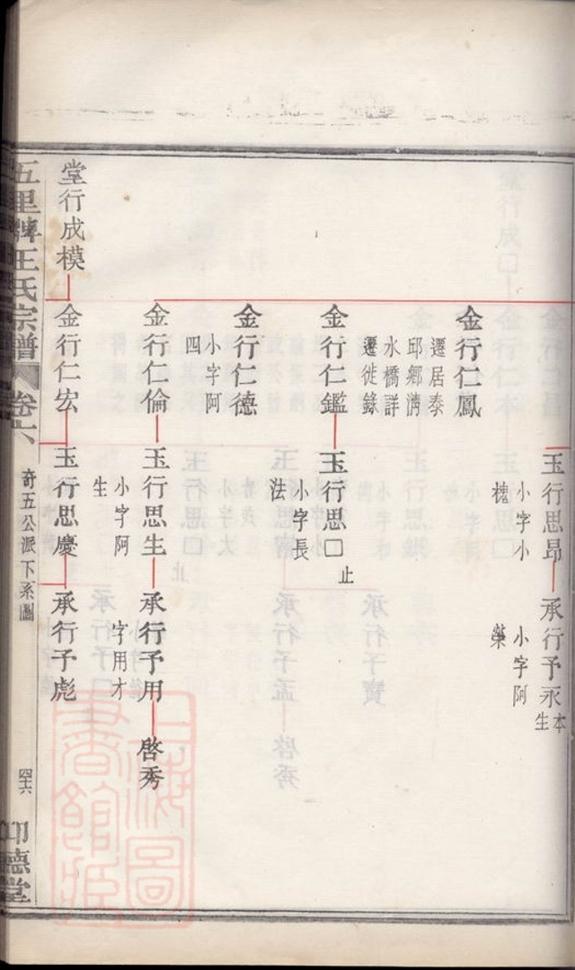 玉行思昂
小字小
槐
承行予永
本
生
小字阿
藥
金行仁鳳
遷居泰
邱鄉濟
水橋詳
遷徙錄
金行仁鑑
玉行思□
止
小字長
法
金行仁德
小字阿
四
金行仁倫
玉行思生
小字阿
生
承行予用
字用才
啓秀
堂行成模
金行仁宏
玉行思慶
承行予彪
五里牌王氏宗譜
卷六
奇五公派下系圖
四六
印德堂
上海圖書館藏